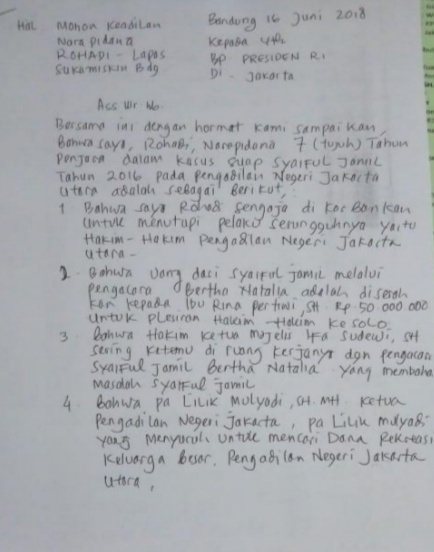 Hal Mohon Keadilan Bandung 16 Juni 2018
Narapidana Kepada Yth
ROHADI - Lapas BP PRESIDEN RI
Sukamiskin Bdg Di - Jakarta
Ass Wr Wb
Bersama ini dengan hormat kami sampaikan,
Bahwa saya, Rohadi, Narapidana 7 (tujuh) Tahun
Penjara dalam kasus suap Syaiful Jamil
Tahun 2016 pada pengadilan Negeri Jakarta
Utara adalah sebagai berikut,
1 Bahwa saya Rohadi sengaja di korbankan
Untuk menutupi pelaku sesungguhnya yaitu
Hakim-Hakim Pengadilan Negeri Jakarta
Utara -
2. Bahwa Uang dari Syaiful Jamil melalui
pengacara Bertha Natalia adalah diserah
kan kepada Ibu Rina pertiwi, SH Rp 50 000 000
Untuk plesiran Hakim-Hakim Ke Solo
3 Bahwa Hakim Ketua majelis Ifa Sudewi, SH
sering Ketemu di ruang kerjanya dgn pengacara
Syaiful Jamil Bertha Natalia yang membaha
Masalah Syaiful Jamil
4 Bahwa pa Lilik Mulyadi, SH. MH Ketua
Pengadilan Negeri Jakarta, pa Lilik mulyadi
yang Menyuruh Untuk mencari Dana Rekreasi
Keluarga Besar, Pengadilan Negeri Jakarta
Utara,